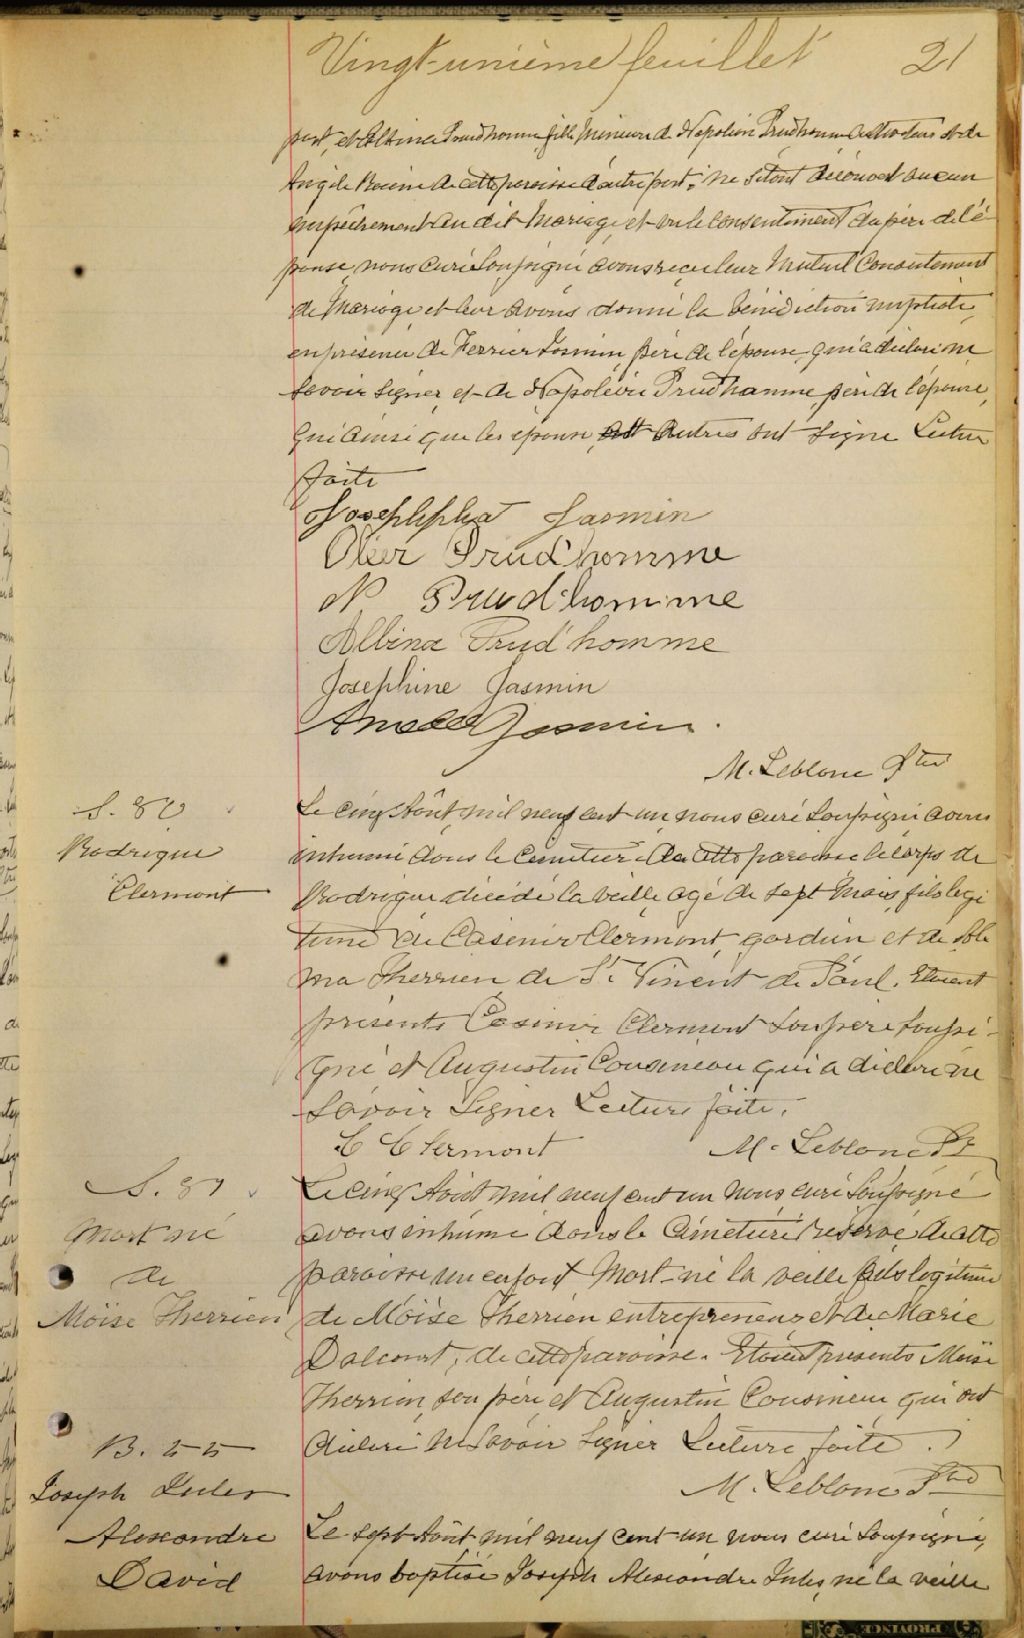 Vingt-unième feuillet 21
part, et Albina Prudhomme, fille Mineure de Napoléon Prudhomme, et de
Angèle Racine de cette paroisse d'autre part; ne s'étant découvert aucun
empêchement au dit Mariage et vu le consentement du père de l'é-
pouse, nous Curé Soussigné avons reçu leur Mutuel Consentement
de Mariage et leur avons donné la bénédiction nuptiale,
en présence de Ferrier Jasmin père de l'épouse, qui a déclaré ne
Savoir Signer et de Napoléon Prud'homme, père de l'épouse,
qui ainsi que les époux, autres ont signé Lecture
faite
Josephphat Jasmin
Olier Prud'homme
N Prud'homme
Albina Prud'homme
Josephine Jasmin
Jasmin.
M. Leblanc Ptre
S. 80
Rodrigue
Clermont
Le cinq Août, mil neuf cent un, nous curé Soussigné avons
inhumé dans le Cimetière de cette paroisse le corps de
Rodrigue décédé la veille agé de sept Mois, fils légi
time de Casimir Clermont, gardien et de
ma Therrien, de St Vincent de Paul. Etaient
présents Casimir Clermont Son père soussi-
gné et Augustin Cousineau qui a déclaré ne
Savoir Signer Lecture faite.
C Clermont M. Leblanc Pt
S. 81
Mort né
de
Moïse Therrien
Le cinq Août mil neuf cent un Nous curé Soussigné
avons inhumé dans le Cimetière réservé de cette
paroisse un enfant Mort-né la veille fils légitime
de Moïse Therrien entrepreneur et de Marie
Dalcourt, de cette paroisse. Etaient présents Moïse
Therrien, son père et Augustin Cousineau qui ont
déclaré ne Savoir Signer Lecture faite.
M. Leblanc Ptre
B. 55
Joseph Jules
Alexandre
David
Le sept Août, mil neuf cent un nous curé Soussigné,
avons baptisé Joseph Alexandre Jules, né la veille
PROVINCE